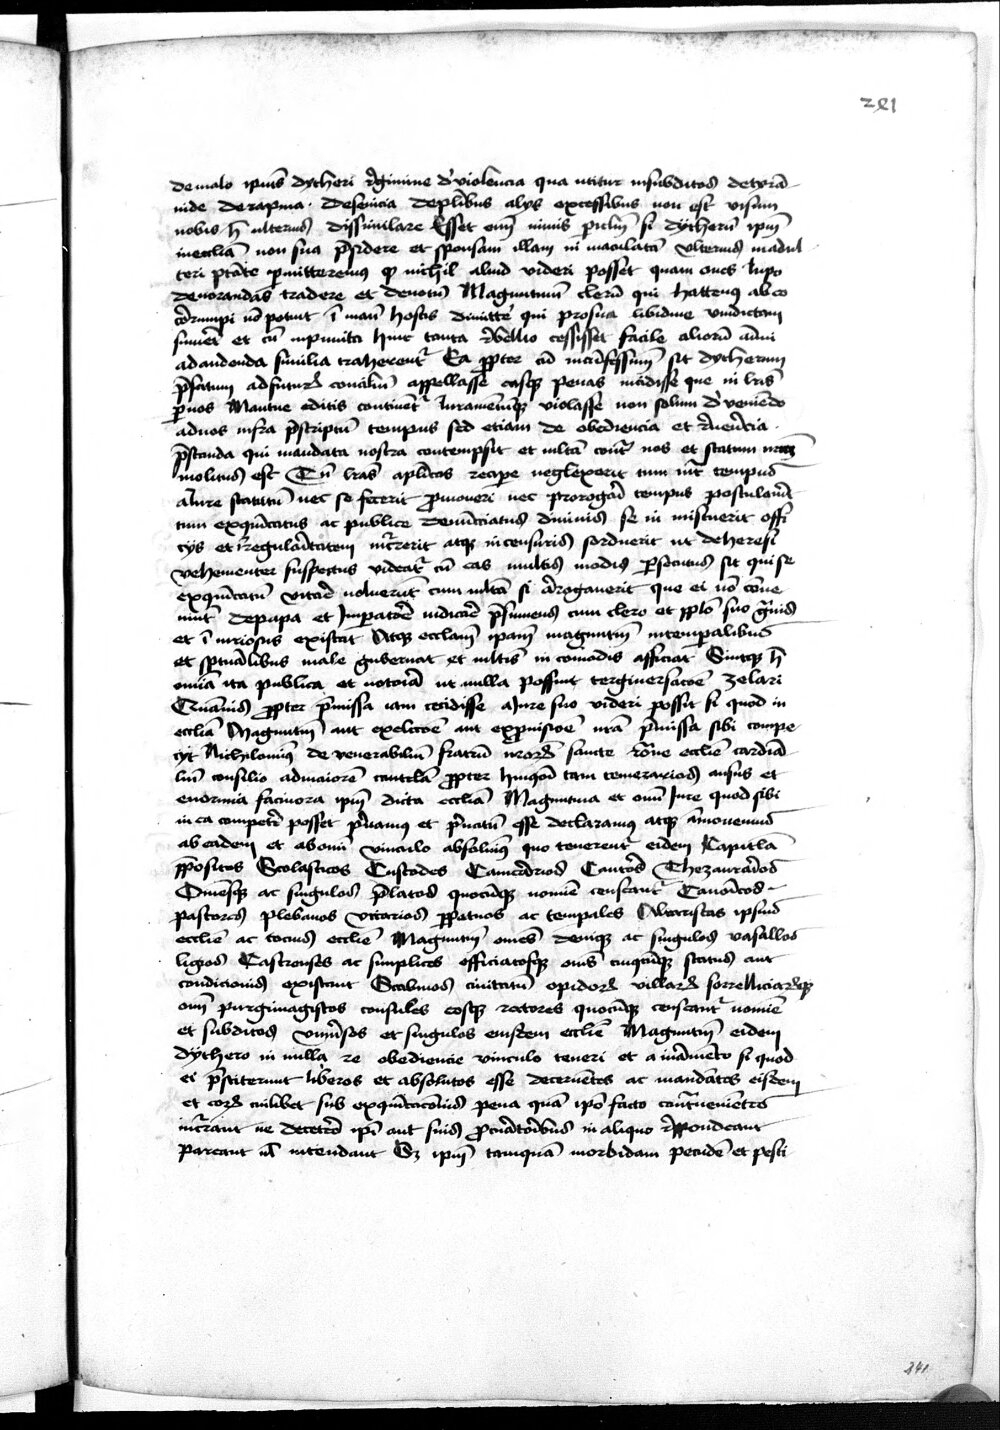 241
de malo ipius dytheri regimine de violencia qua utitur in subditos de tyran
nide de rapina . de sevicia de plibus alys excessibus non est visum
nobis h ulterius dissimulare Esset eni nimis piclm si dytheru ipm
in ecclia non sua psidere et sponsam illam in maculata ulterius in adul
teri ptate pmitteremus qd nichil aliud videri posset quam oues lupo
devorandas tradere et devotu Maguntinu cleru qui hattenus ab eo
corrumpi no potuit i manu hostis dimitte qui pro sua libidine vindictam
sumeret et cu inpunita huic tanta rebellio cessisset facile alioru animi
ad audenda similia traherent Ea ppter cu in confessum sit dytherum
pfatum ad futuru conciliu appellasse easque penas incidisse que in lris
p nos Mantue editis continent Iuramentuque violasse non solum de veniendo
ad nos infra pscriptu tempus sed etiam de obediencia et reverecia .
pstanda qui mandata nostra contempsit et multa contra nos et statum nrm
molitus est Cu lras aplicas recipe neglexerit tum infra tempus
a Iure statutu nec se fecerit promoveri nec prorogari tempus postulaverit
tum excommunicatus ac publice denunciatus divinis se in miscuerit offi
cys et irregularitatem incurrerit atque in censuris sorduerit ut de heresi
vehementer suspectus videat cu eas multis modis persecutus sit qui se
excommunicatu vitare voluerut cum multa si arrogaverit que ei no conve
niut de papa et Imperatore iudicare psumens cum clero et pplo suo gravis
et iniuriosus existat Atque ecclesiam ipam maguntin in temporalibus
et spiritualibus male gubernat et multis in comodis afficiat Sintque hec
omnia ita publica et notoria ut nulla possint tergiversacoe zelari
Quamvis ppter pmissa iam cecidisse a Iure suo videri possit si quod in
ecclia Maguntin aut ex eleccoe aut ex provisioe nra pmissa sibi compe
cyt Nichilominus de venerabiliu fratru nroru sancte Roane ecclie cardina
liu consilio ad maiore cautela ppter huiusmodi tam temerarios ausus et
enormia facinora ipm dicta ecclia Maguntina et omi Iure quod sibi
in ea competere posset privamus et privatu esse declaramus atque amovemus
ab eadem et ab omi vinculo absolvimus quo tenerent eidem Capitula
ppositos Scolasticos Custodes Camerarios Cantores Thezaurarios
Omesque ac singulos platos quocuque nomie censeant Canonicos
pastores plebanos vicarios ppetuos ac temporales Altaristas ipsius
ecclie ac tocius ecclie Maguntin omes denique ac singulos vasallos
ligios Castrenses ac simplices officiatosque omis cuiuscuque status aut
condicionis existant Scabinos civitatu opidoru villaru
omi purgimagistros consules eosque rectores quocuque censeant nomie
et subditos universos et singulos eiusdem ecclie Maguntin eidem
dythero in nulla re obediencie vinculo teneri et a iurameto si quod
ei pstiterunt liberos et absolutos esse decernetes ac mandates eisdem
et eoru cuilibet sub excommunicacionis pena qua ipo facto contravenietes
incurrant ne decetero ipi aut suis procuratoribus in aliquo respondeant
pareant vel intendant Sz ipm tamquam morbidam pecude et pesti
241